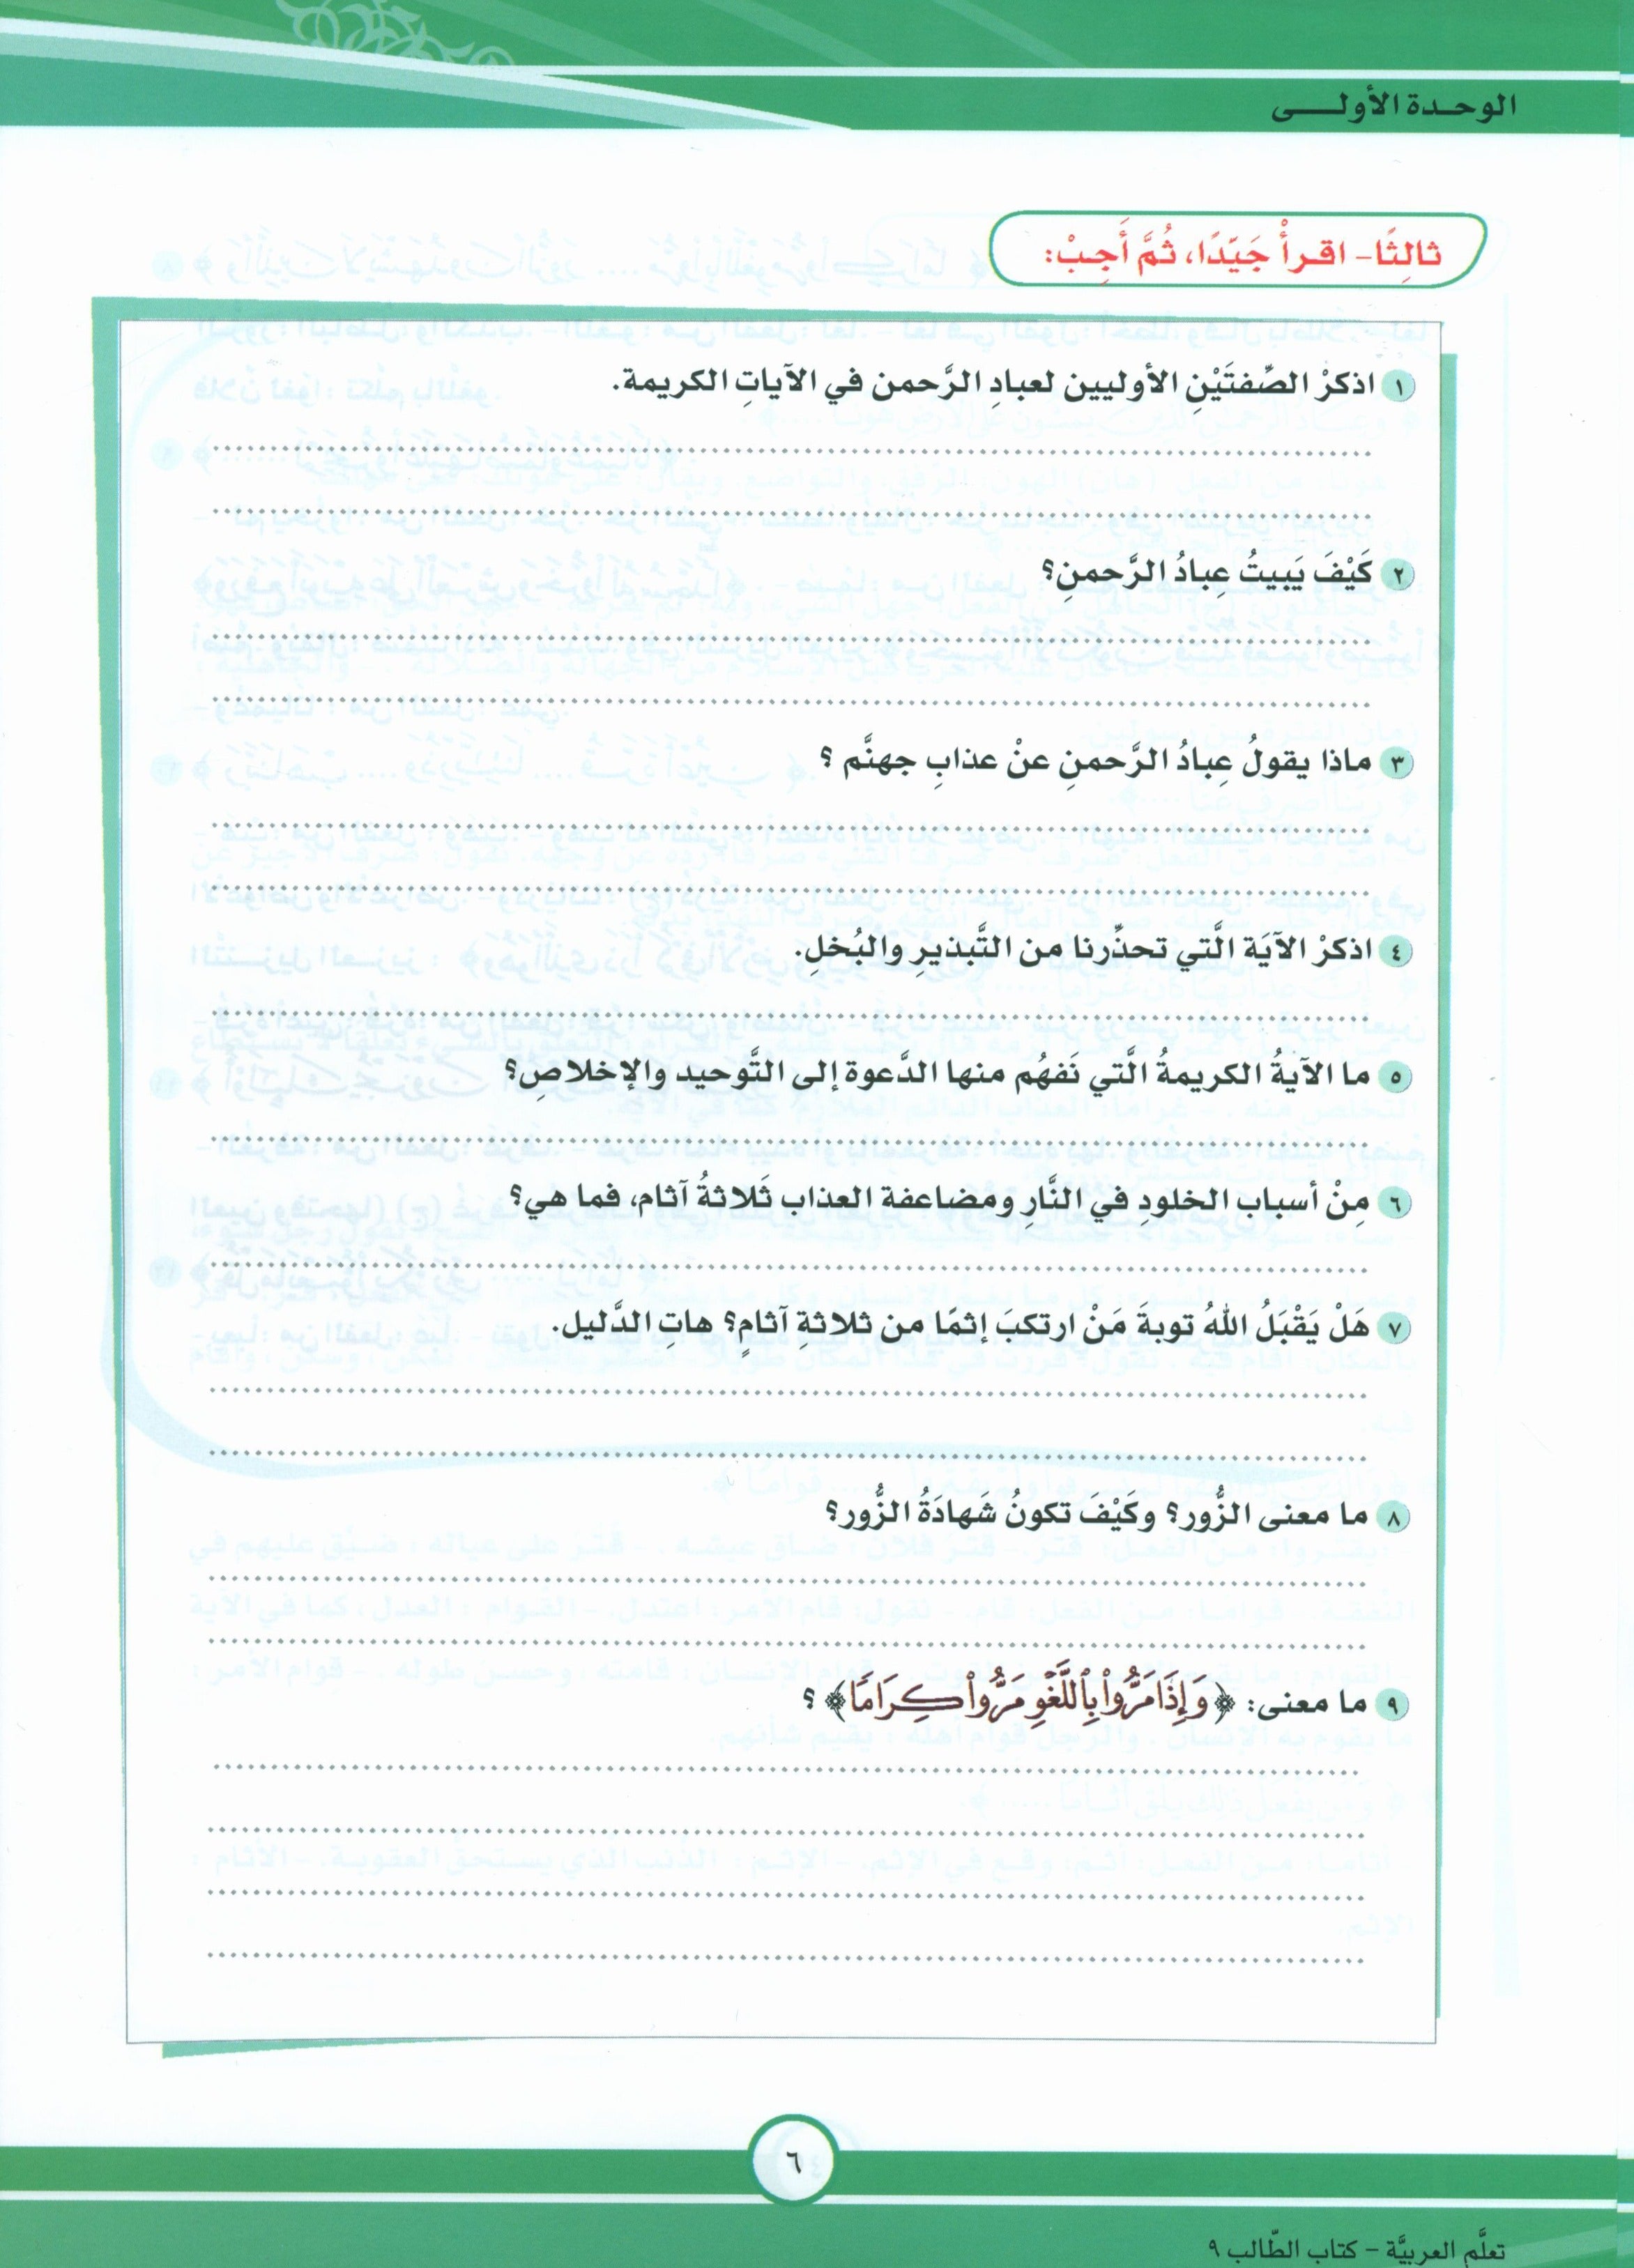 الوحدة الأولى
ثالِثًا- اقرأْ جَيّدًا، ثُمَّ أَجِبْ:
١ اذكرْ الصِّفتَيْنِ الأوليين لعبادِ الرَّحمن في الآياتِ الكريمة.
٢ كَيْفَ يَبيتُ عِبادُ الرَّحمنِ؟
٣ ماذا يقولُ عِبادُ الرَّحمنِ عنْ عذابِ جهنَّم ؟
٤ اذكرْ الآيَة الَّتي تحذِّرنا من التَّبذيرِ والبُخلِ.
٥ ما الآيةُ الكريمةُ الَّتي نَفهُم منها الدَّعوة إلى التَّوحيد والإخلاصِ؟
٦ مِنْ أسباب الخلودِ في النَّارِ ومضاعفة العذاب ثَلاثةُ آثام، فما هي؟
٧ هَلْ يَقْبَلُ اللهُ توبةَ مَنْ ارتكبَ إثمًا من ثلاثةِ آثامٍ؟ هاتِ الدَّليل.
٨ ما معنى الزُّور؟ وكَيْفَ تكونُ شَهادَةُ الزُّور؟
٩ ما معنى: ﴿وَإِذَا مَرُّوا۟ بِٱللَّغْوِ مَرُّوا۟ كِرَامًا﴾ ؟
٦
تعلَّم العربيَّة - كتاب الطّالب ٩